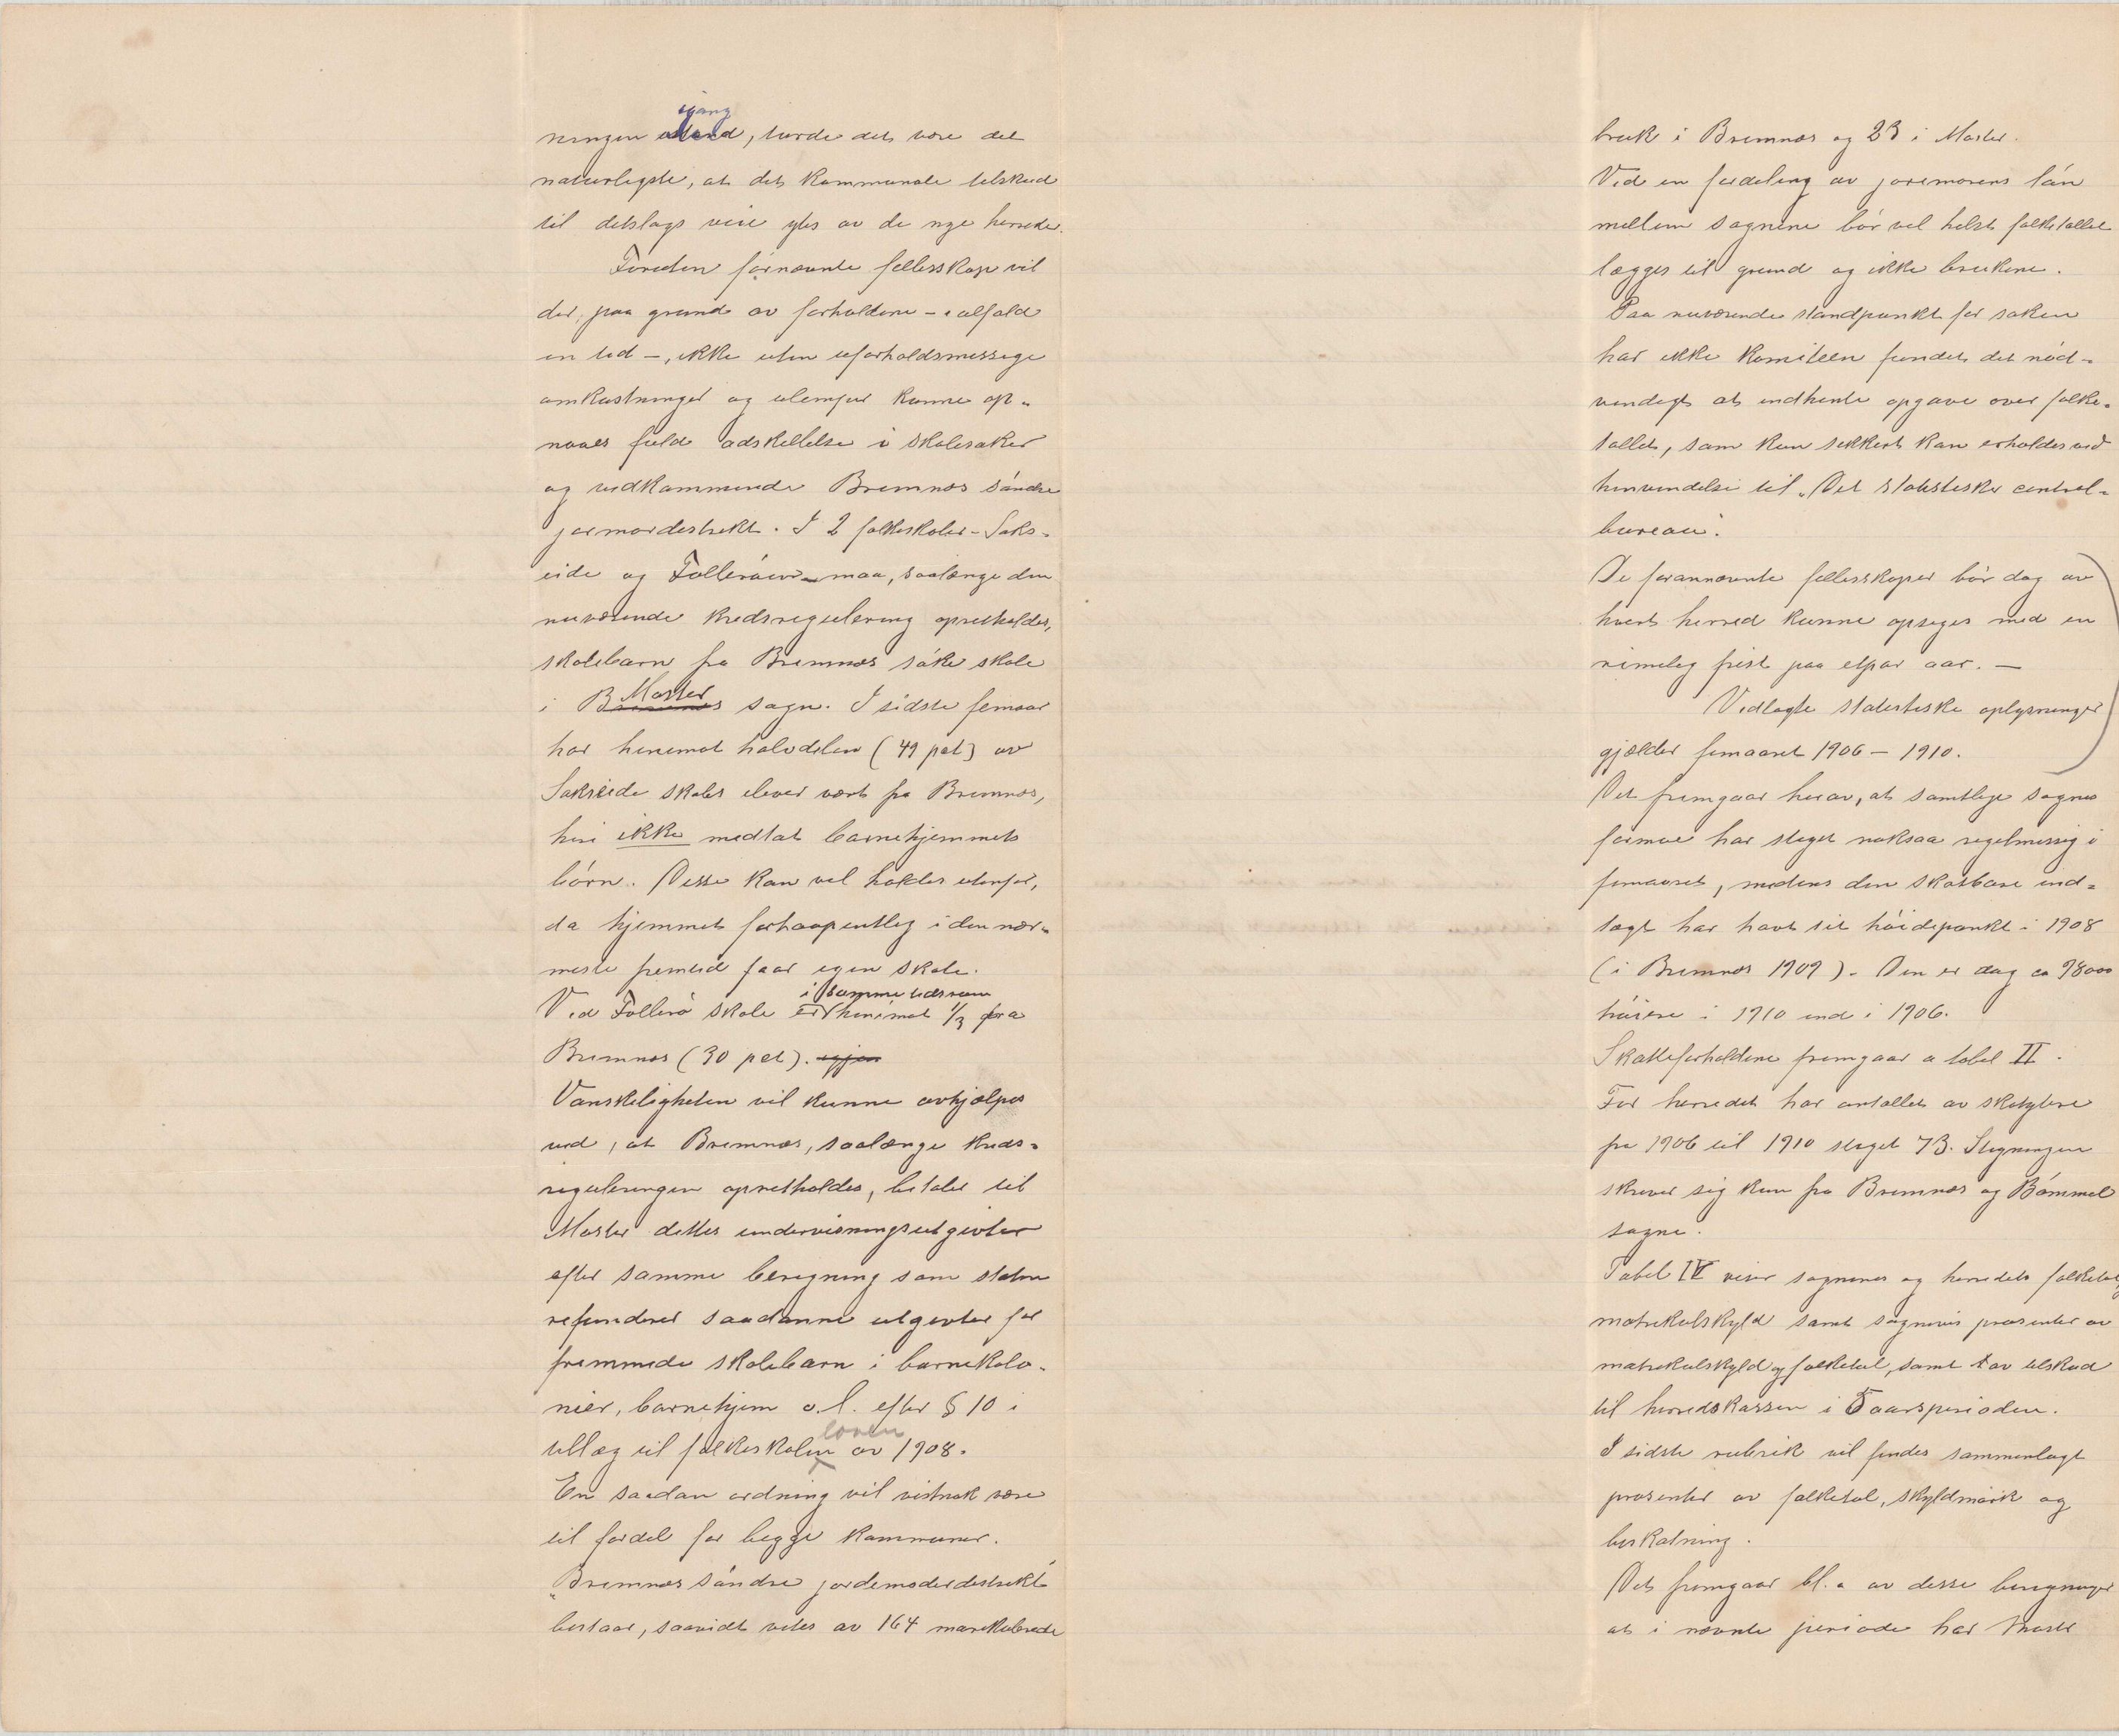 igang
ningen istand, turde det være det
naturligste, at det kommunale tilskud
til detslags veie ytes av de nye herreder.
Foruten førnævnte fellesskap vil
der, paa grund av forholdene - ialfald
en tid -, ikke uten uforholdsmessige
omkastninger og ulemper kunne op-
naaes fuld adskillelse i skolesaker
og vedkommende Bremnes søndre
jormordestrikt. I 2 folkeskoler - Saks-
eide og Follerøen - maa, saalænge den
nuværende kredsregulering opretholdes,
skolebarn fra Bremnes søke skole
i Bremnes Moster sogn. I sidste femaar
har henimot halvdelen (49 pct) av
Sakseide skoles elever vært fra Bremnes,
heri ikke medtat barnehjemmets
børn. Disse kan vel holdes utenfor,
da hjemmet forhaapentleg i den nær-
meste fremtid faar egen skole.
i samme tidsrum
Ved Follerø skole er henimot 1/3 fra
Bremnes (30 pct). igjen
Vanskeligheten vil kunne avhjælpes
ved, at Bremnes, saalænge kreds-
reguleringen opretholdes, betaler til
Moster dettes undervisningsutgivter
efter samme beregning som staten
refunderer saadanne utgivter for
fremmede skolebarn i barnekolo-
nier, barnehjem o.l. efter § 10 i
loven
tillæg til folkeskolen av 1908.
En saadan ordning vil vistnok være
til fordel for begge kommuner.
"Bremnes søndre jordemoderdestrikt
bestaar, saavidt vites av 164 matrikulerede
bruk i Bremnes og 23 i Moster.
Ved en fordeling av joremorens løn
mellem sognene bør vel helst folketallet
lægges til grund og ikke brukene.
Paa nuværende standpunkt for saken
har ikke komiteen fundet det nød-
vendigt at indhente opgave over folke-
tallet, som kun sikkert kan erholdes ved
henvendelse til "Det statistiske central-
bureau".
De forannævnte fellesskaper bør dog av
hvert herred kunne opsiges med en
rimeleg frist paa etpar aar. —
Vedlagte statestiske oplysninger
gjælder femaaret 1906 - 1910.
Det fremgaar herav, at samtlige sognes
formue har steget noksaa regelmessig i
femaaret, medens den skatbare ind-
tægt har havt sit høidepunkt i 1908
(i Bremnes 1909). Den er dog ca 98000
høiere i 1910 end i 1906.
Skatteforholdene fremgaar a tabel II.
For herredet har antallet av skatytere
fra 1906 til 1910 steget 73. Stigningen
skriver sig kun fra Bremnes og Bømmel
sogne.
Tabel IV viser sognenes og herredets folketal,
matrikulskyld samt sognevis prosenter av
matrikulskyld og folketal, samt av tilskud
til herredskassen i 5aarsperioden.
I sidste rubrik vil findes sammenlagt
prosenter av folketal, skyldmark og
beskatning.
Det fremgaar bl. a av desse beregninger
at i nævnte periode har Moster